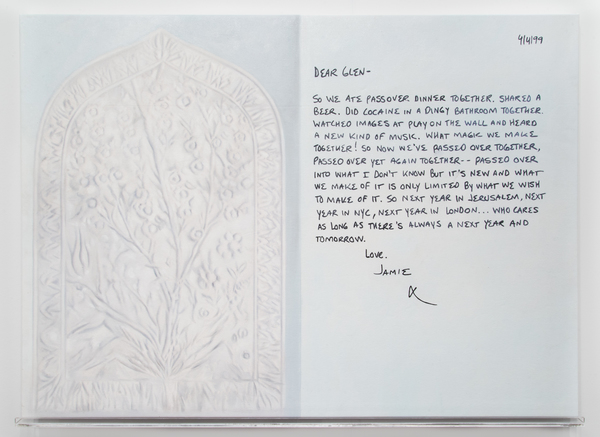 4/4/99
DEAR GLEN-
SO WE ATE PASSOVER DINNER TOGETHER. SHARED A
BEER. DID COCAINE IN A DINGY BATHROOM TOGETHER
WATCHED IMAGES AT PLAY ON THE WALL AND HEARD
A NEW KIND OF MUSIC. WHAT MAGIC WE MAKE
TOGETHER! SO NOW WE'VE PASSED OVER TOGETHER,
PASSED OVER YET AGAIN TOGETHER-- PASSED OVER
INTO WHAT I DON'T KNOW BUT IT'S NEW AND WHAT
WE MAKE OF IT IS ONLY LIMITED BY WHAT WE WISH
TO MAKE OF IT. SO NEXT YEAR IN JERUSALEM, NEXT
YEAR IN NYC, NEXT YEAR IN LONDON... WHO CARES
AS LONG AS THERE'S ALWAYS A NEXT YEAR AND
TOMORROW.
LOVE.
JAMIE